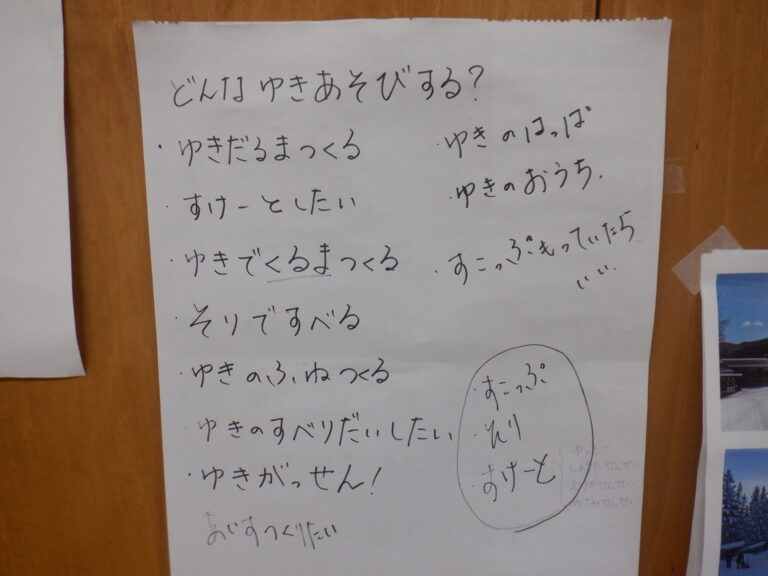 どんなゆきあそびする?
・ゆきだるまつくる
・すけーとしたい
・ゆきでくるまつくる
・そりですべる
・ゆきのふねつくる
・ゆきのすべりだいしたい
・ゆきがっせん!
あいすつくりたい
・ゆきのはっぱ
・ゆきのおうち.
・すこっぷもっていたら
いい.
・すこっぷ
・そり
・すけーと